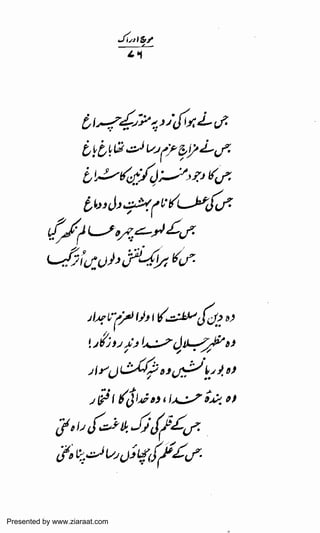 موجِ ادراک
۷۶
جس نے ہوا کی زد پہ منور کیے چراغ
جس نے مزاج رسالت کیا باغ باغ
جس کا وجود منزلِ کونین کا سراغ
جس کی عطا کا نام دل و دماغ
جس کے لہو سے چہرۂ عالم نکھر گیا
جس کا ہر ایک نقش دلوں میں اُتر گیا
وہ دیں کی سلطنت کا اولوالعزم تاجدار
وہ مظہرِ جلالِ خداوندِ روزگار!
وہ بوریا نشیں وہ سوار
وہ بندۂ خدا، وہ خدائی کا افتخار
جس کے قلم کی نوک بلاغت کی راہ تھی
جس کے علم کی چھاؤں رسالت پناہ تھی
Presented by www.ziaraat.com